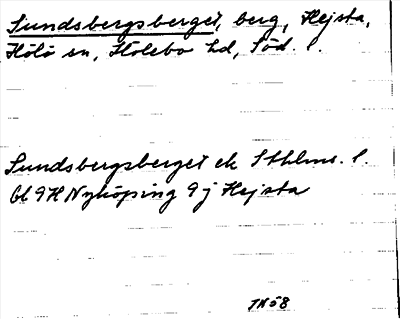 Sundsbergsberget, berg, Hejsta,
Hölö sn, Hölebo hd, Söd. l.
Sundsbergsberget ek Sthlms. l.
bl 9H Nyköping 9j Hejsta
TN58